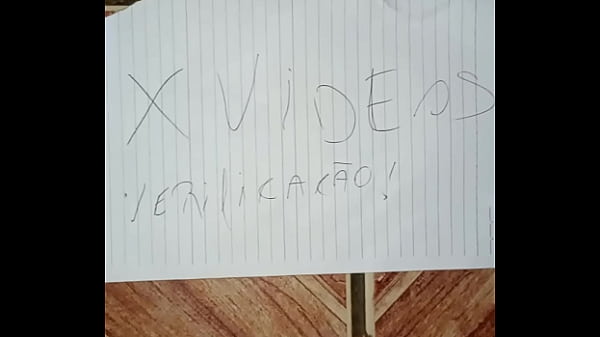 X VIDEOS
VERIFICAÇÃO!